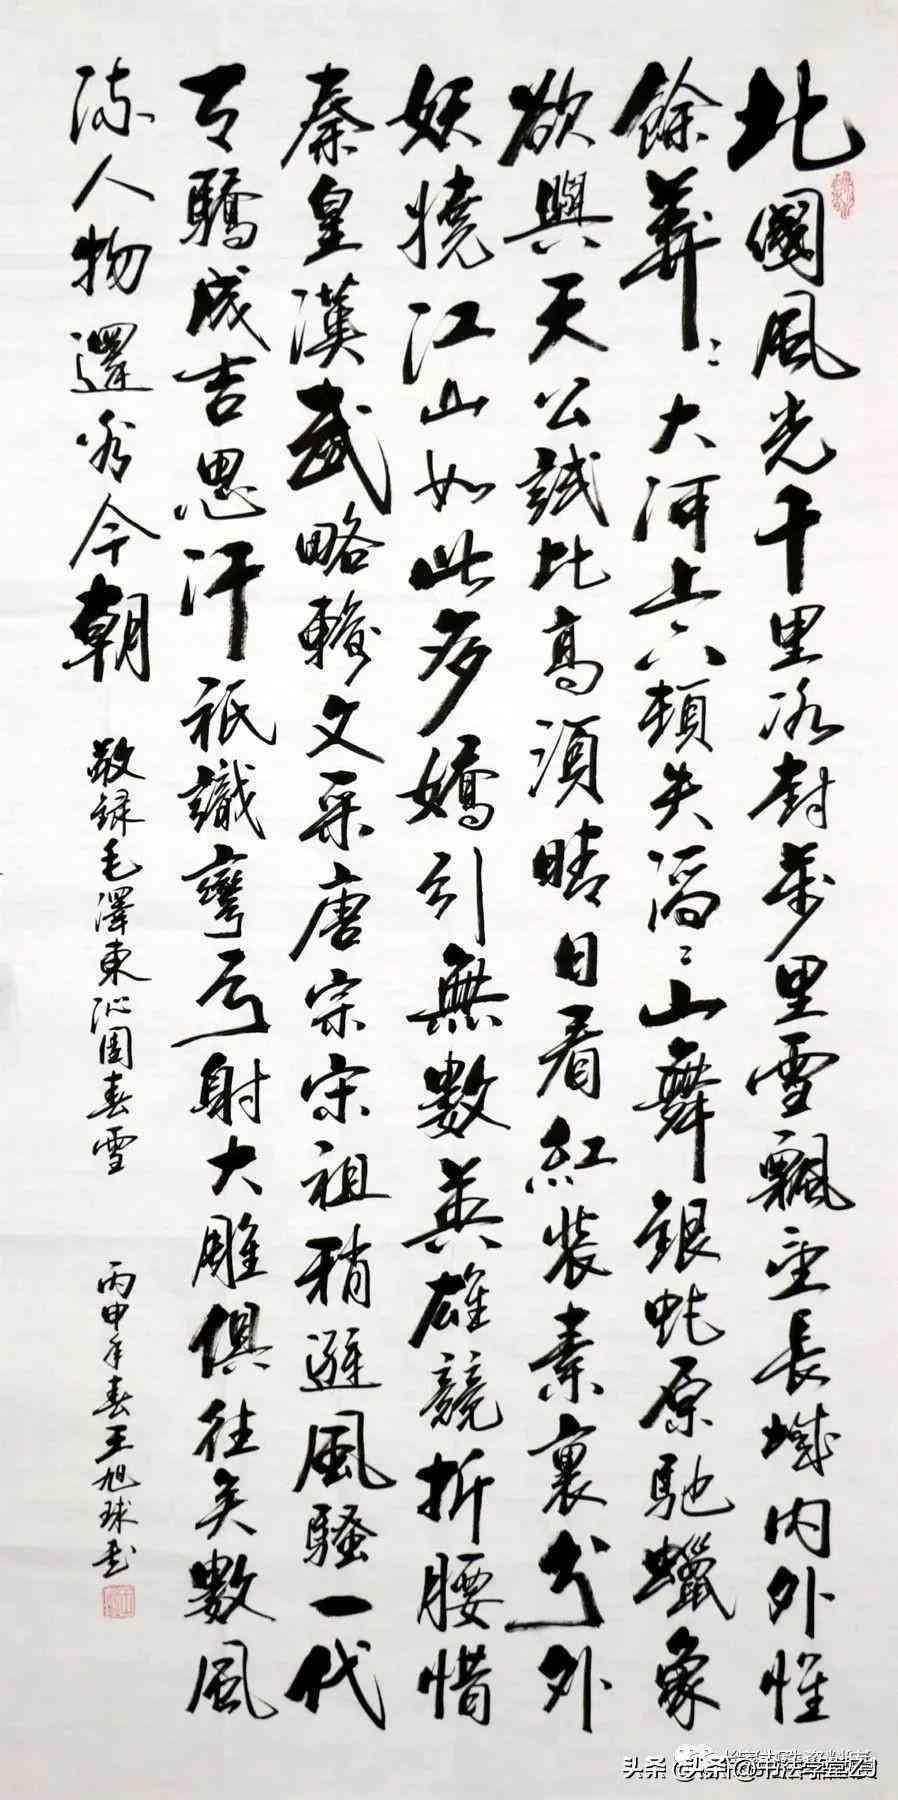 北國風光千里冰封萬里雪飄望長城內外惟
餘莽〻大河上下頓失滔〻山舞銀蛇原馳蠟象
欲與天公試比高須晴日看紅裝素裹分外
妖嬈江山如此多嬌引無數英雄競折腰惜
秦皇漢武略輸文采唐宗宋祖稍遜風騷一代
天驕成吉思汗祇識彎弓射大雕俱往矣數風
流人物還看今朝
敬録毛澤東沁園春雪
丙申年春王旭球書
头条 @头条@书法学堂